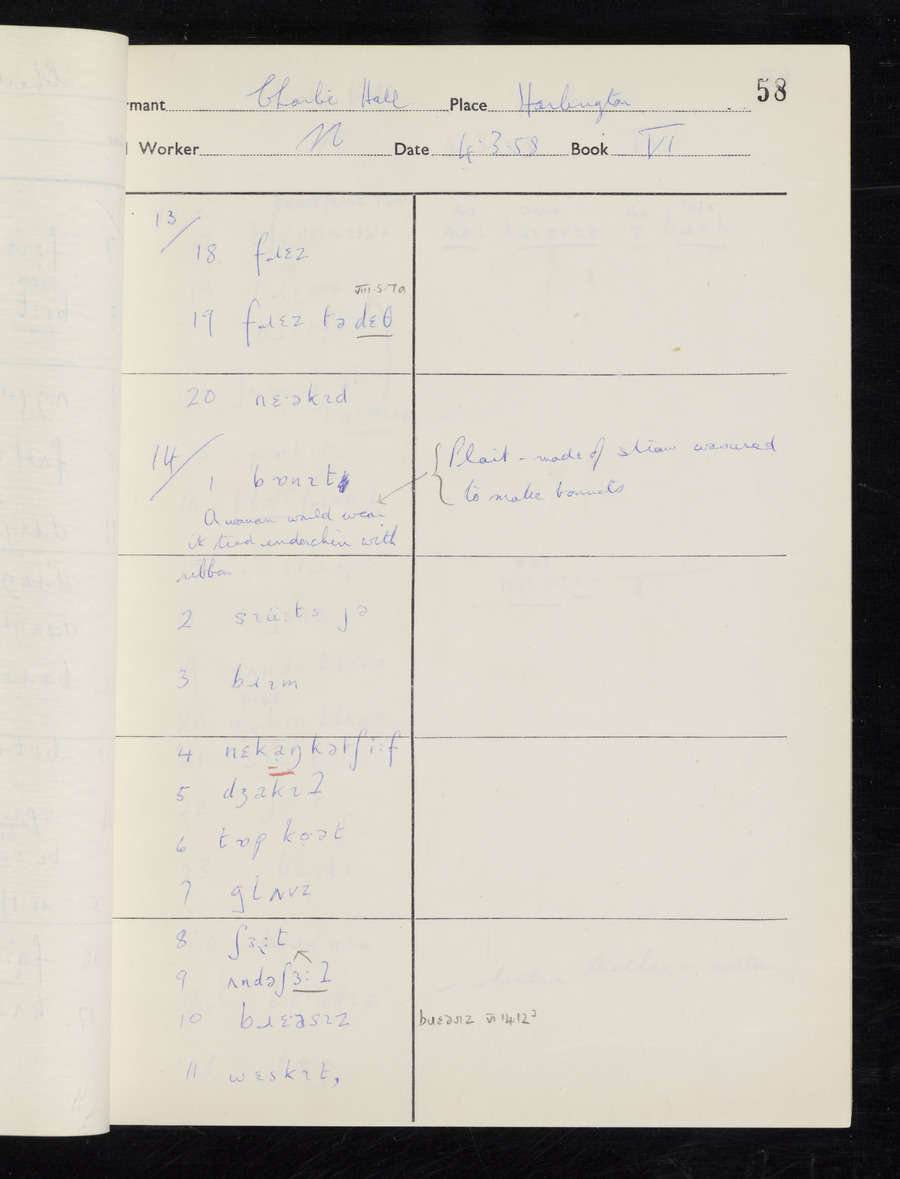 58
rmant Charlie Hall Place Harlington
Worker N Date 4.3.58 Book VI
13/
18 fɹɛz
VIII.5.7a
19 fɹɛz tə dɛθ
20 nɛ·əkɪd
14/
1 bɒnɪt
{ Plait - made of straw
to make bonnets
A woman would wear
it tied underchin with
ribbon
2 jə
3 bɹɪm
4 nɛkaŋkətʃi:f
5 dʒakɪʔ
6 tɒp ko̜ət
7 glʌvz
8 ʃɜ:t
9 ʌndəʃɜ:ʔ
10 bɹɛəsɪz
11 wɛskɪt,
VI 14 12